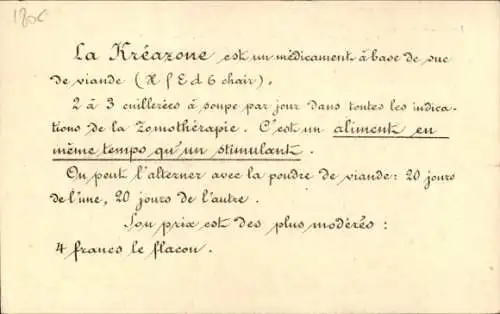 180c
La Kréazone est un médicament à base de suc
de viande (X f E d 6 chair).
2 à 3 cuillerées à soupe par jour dans toutes les indica-
tions de la Zomothérapie. C'est un aliment en
même temps qu'un stimulant.
On peut l'alterner avec la poudre de viande: 20 jours
de l'une, 20 jours de l'autre.
Son prix est des plus modérés:
4 francs le flacon.